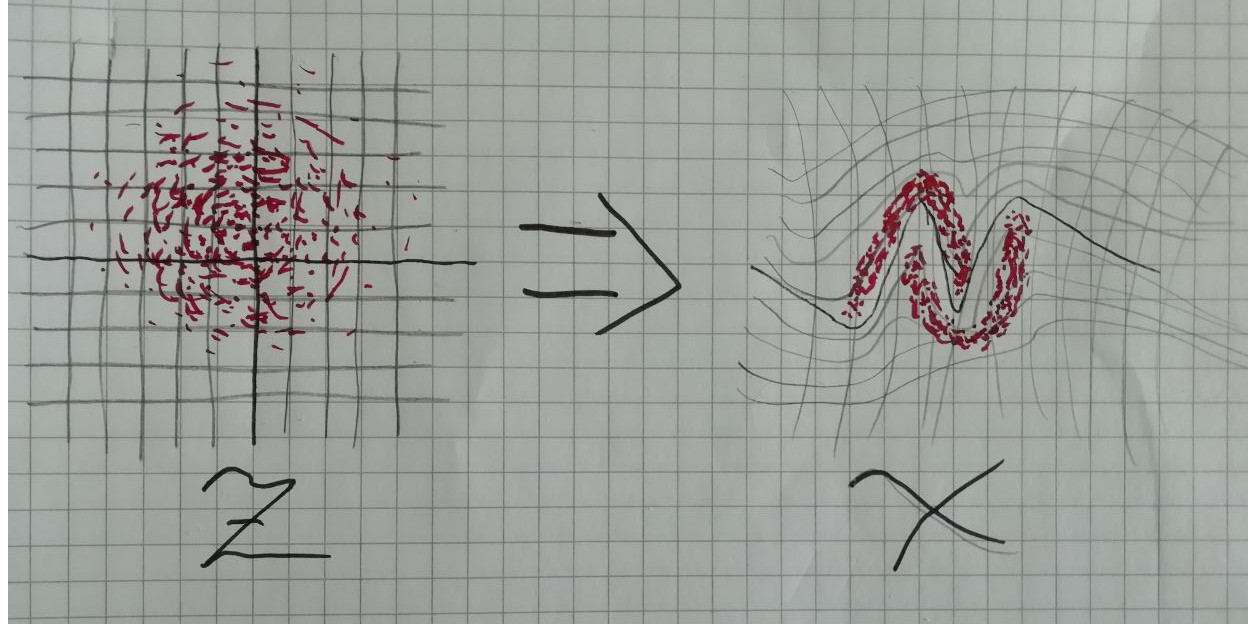 z ⇒ x